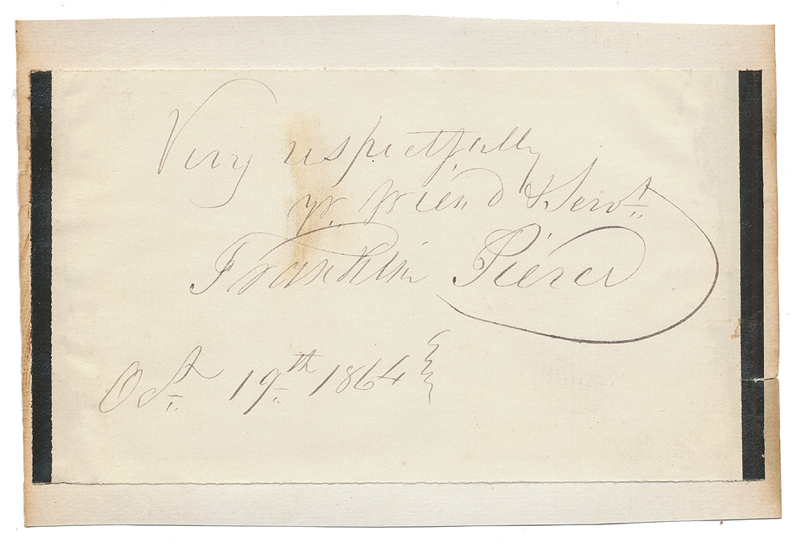 Very respectfully
yr. friend & Servt.
Franklin Pierce
Oct. 19th 1864